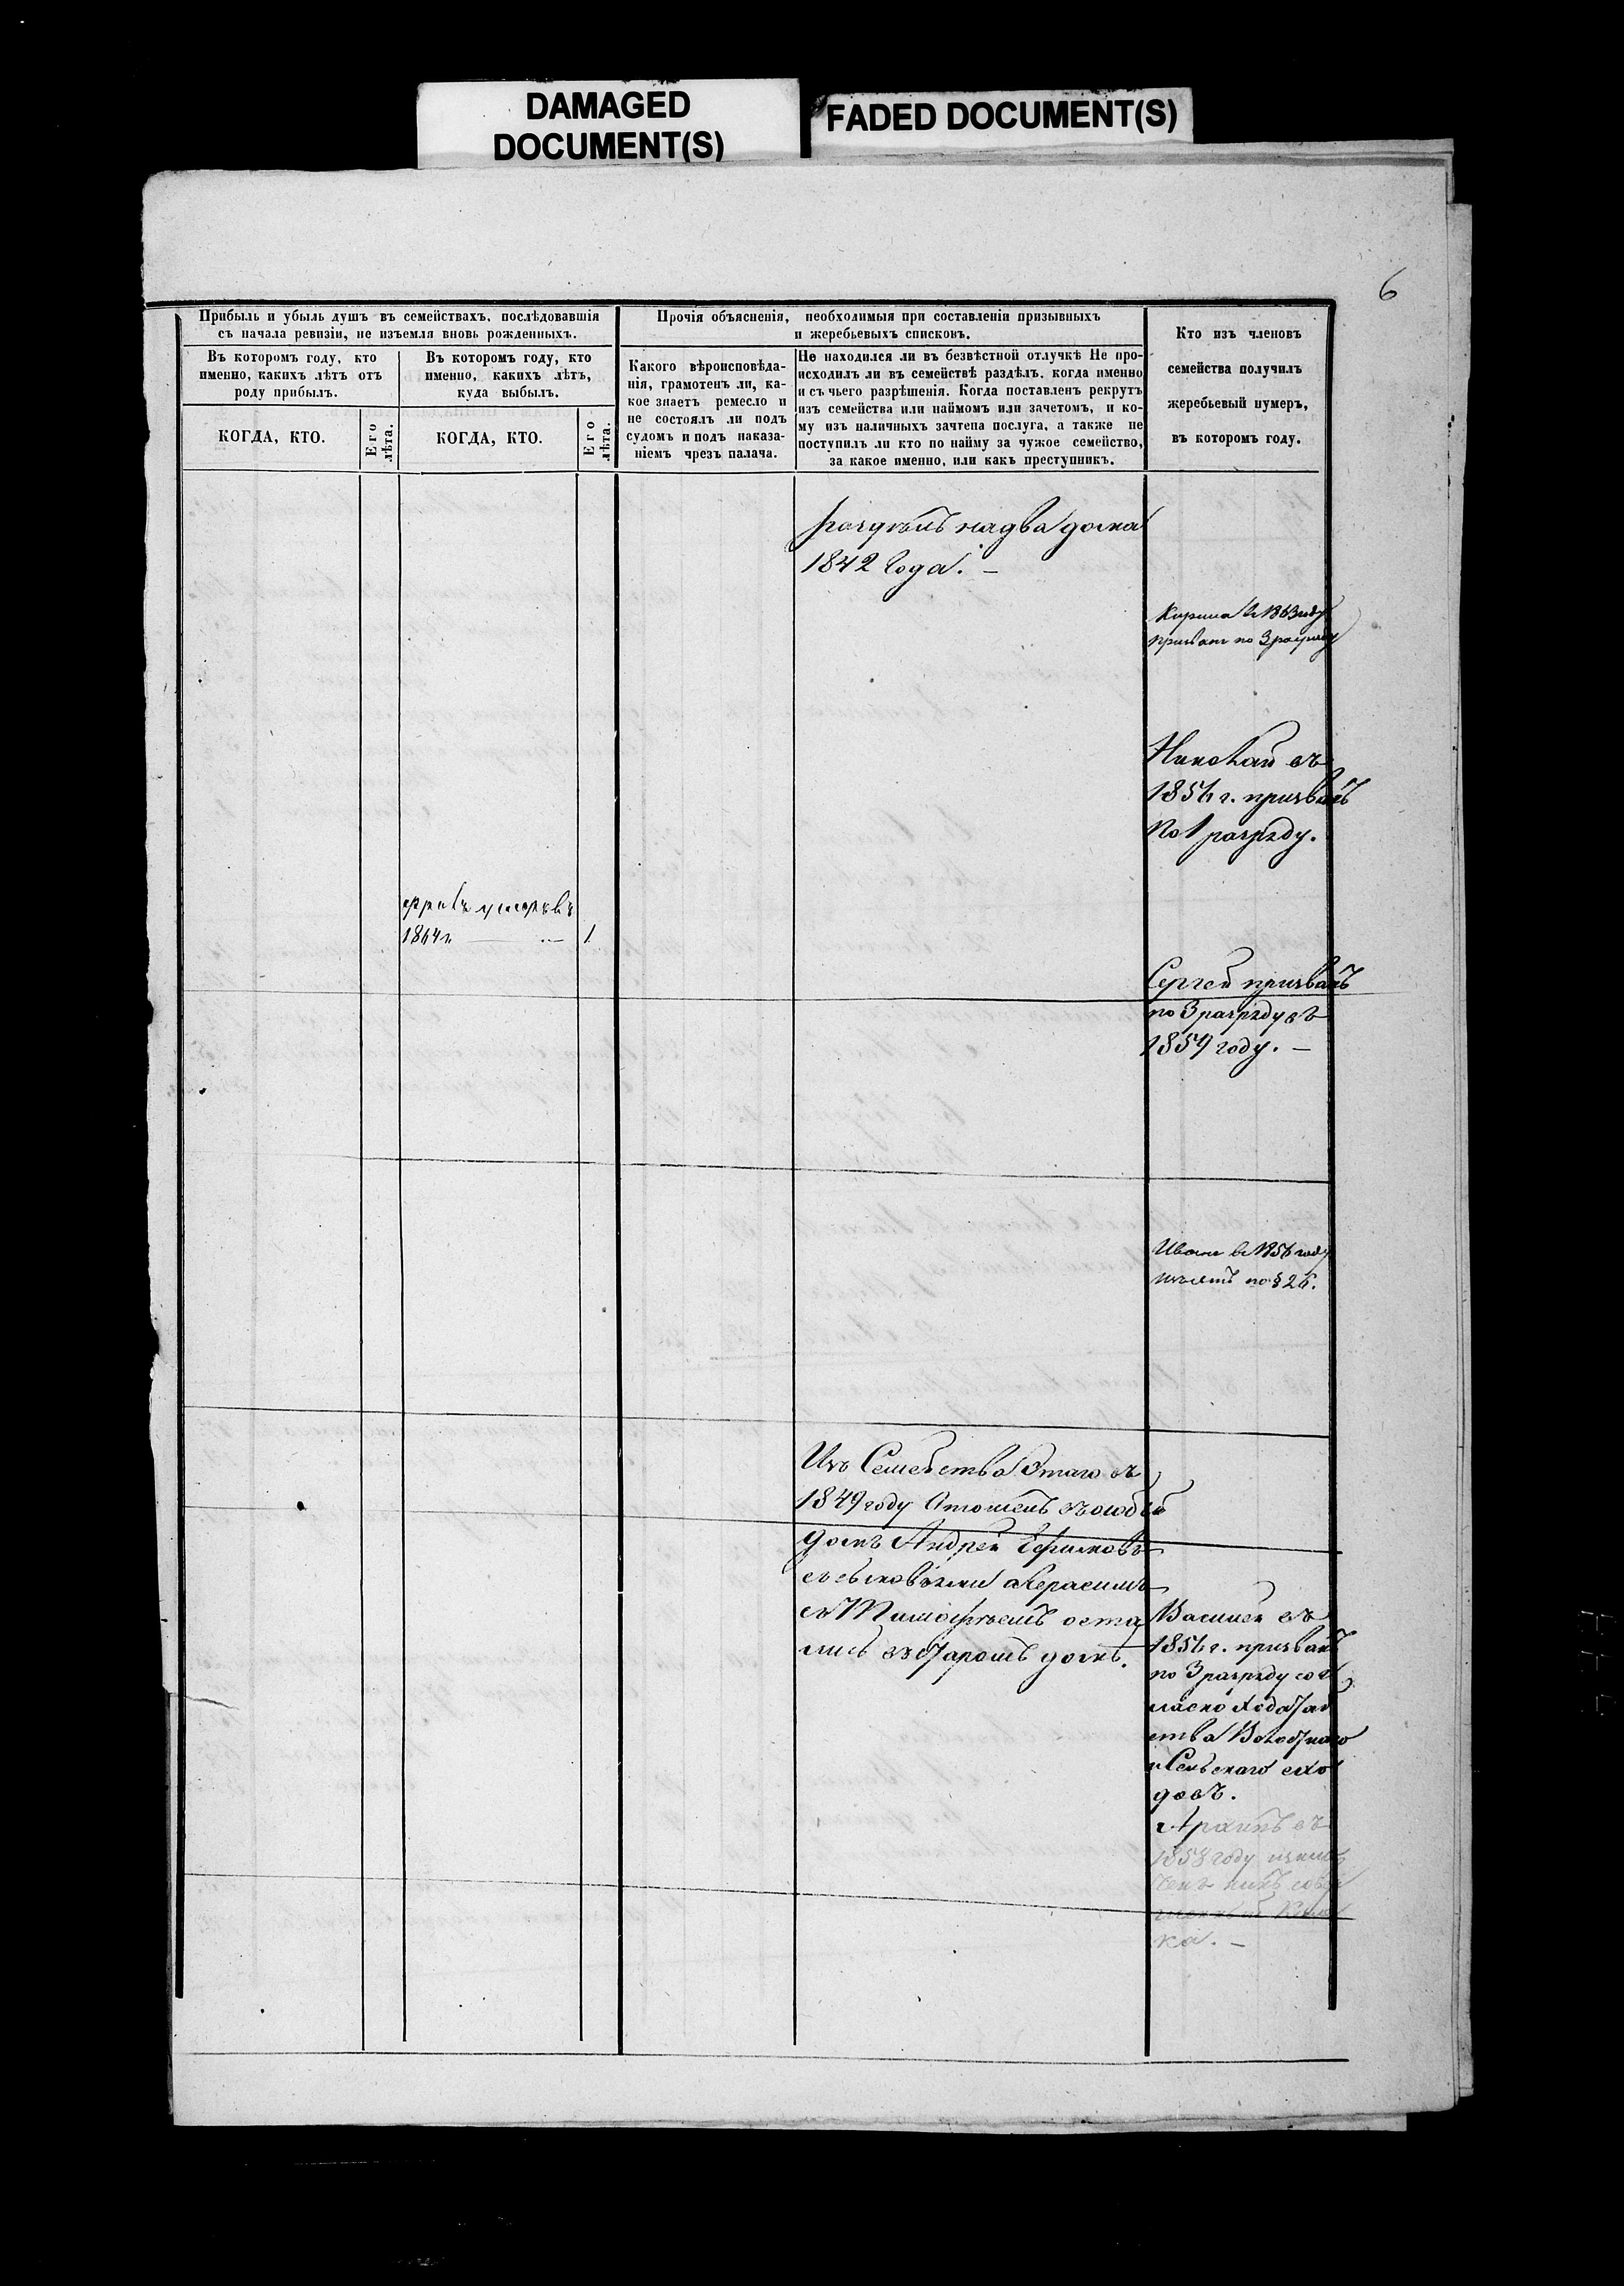 DAMAGED
DOCUMENT(S)
FADED DOCUMENT(S)
6
Прибыль и убыль душъ въ семействахъ, послѣдовавшія
съ начала ревизіи, не изъемля вновь рожденныхъ.
Въ которомъ году, кто
именно, какихъ лѣтъ отъ
роду прибылъ.
КОГДА, КТО.
Его
лѣта.
Въ которомъ году, кто
именно, какихъ лѣтъ,
куда выбылъ.
КОГДА, КТО.
Его
лѣта.
Прочія объясненія, необходимыя при составленіи призывныхъ
и жеребьевыхъ списковъ.
Какого вѣроисповѣда-
нія, грамотенъ ли, ка-
кое знаетъ ремесло и
не состоялъ ли подъ
судомъ и подъ наказа-
ніемъ чрезъ палача.
Не находился ли въ безвѣстной отлучкѣ Не про-
исходилъ ли въ семействѣ раздѣлъ, когда именно
и съ чьего разрѣшенія. Когда поставленъ рекрутъ
изъ семейства или наймомъ или зачетомъ, и ко-
му изъ наличныхъ зачтена послуга, а также не
поступилъ ли кто по найму за чужое семейство,
за какое именно, или какъ преступникъ.
Кто изъ членовъ
семейства получилъ
жеребьевый нумеръ,
въ которомъ году.
раздѣлъ на два дома
1842 года. —
въ 1863 году
призванъ по 3 разряду
Николай въ
1856 г. призванъ
по 1 разряду.
1864 г. — 1
Сергей призванъ
по 3 разряду въ
1859 году. —
Иванъ въ 1856 году
изъятъ по § 26.
Изъ Семейства этаго въ
1849 году Отошелъ въ особый
домъ Андрей Ефимовъ
съ сыновьями а Герасимъ
съ Тимофѣемъ оста
лись въ старомъ домѣ.
Василей въ
1856 г. призванъ
по 3 разряду со
гласно ходатай
ства Волостнаго
и Сельскаго схо
довъ.
въ
1858 году
ка. —